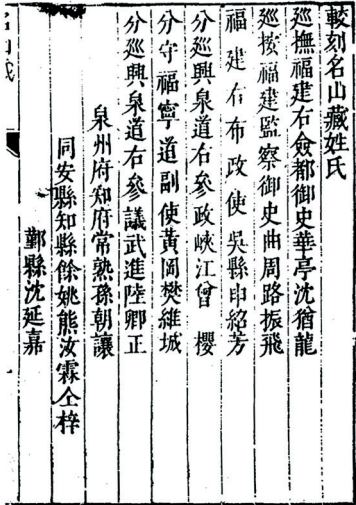 較刻名山藏姓氏
廵撫福建右僉都御史華亭沈猶龍
廵按福建監察御史曲周路振飛
福建右布政使吳縣申紹芳
分廵興泉道右參政峽江曾櫻
分守福寧道副使黃岡樊維城
分廵興泉道右參議武進陸卿正
泉州府知府常熟孫朝讓
同安縣知縣餘姚熊汝霖仝梓
鄞縣沈延嘉